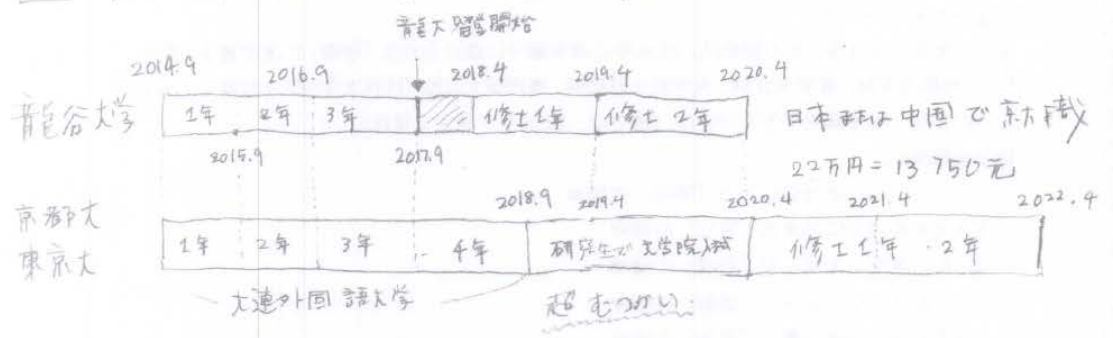 龍大留学開始
2014.9 2016.9 2018.4 2019.4 2020.4
龍谷大学 1年 2年 3年 修士1年 修士2年 日本または中国で就職
2015.9 2017.9
22万円=13750元
2018.9 2019.4 2020.4 2021.4 2022.4
京都大
東京大
1年 2年 3年 4年 研究生で大学院入試 修士1年・2年
大連外国語大学 超むつかい